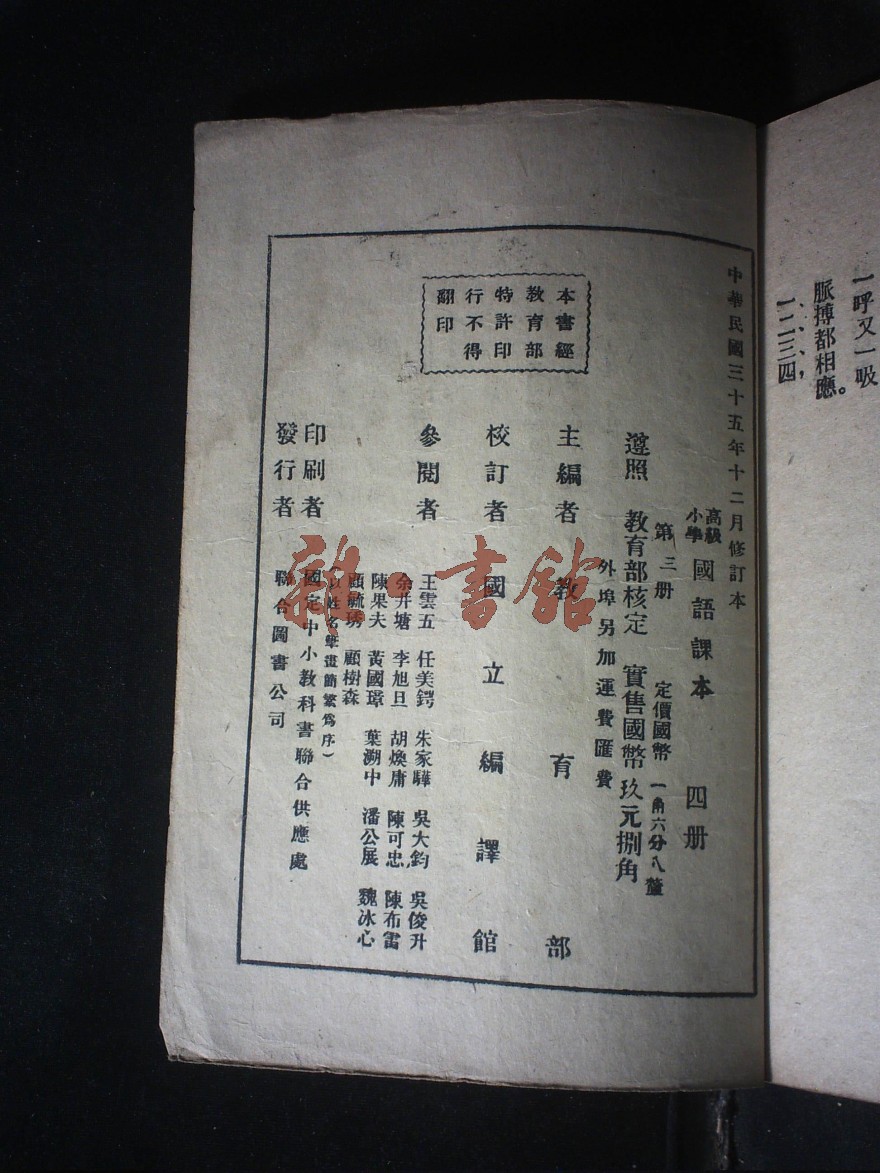 一呼又一吸
脈搏都相應。
一、二、三、四，
中華民國三十五年十二月修訂本
高級小學 國語課本 四册
第三册 定價國幣 一角六分八釐
遵照 教育部核定 實售國幣玖元捌角
外埠另加運費匯費
主編者 教育部
校訂者 國立編譯館
參閱者
王雲五 任美鍔 朱家驊 吳大鈞 吳俊升
余井塘 李旭旦 胡煥庸 陳可忠 陳布雷
陳果夫 黃國璋 葉溯中 潘公展 魏冰心
顧毓琇 顧樹森
（以姓名筆畫簡繁爲序）
印刷者 國定中小教科書聯合供應處
發行者 聯合圖書公司
本書經
教育部
特許印
行不得
翻印
雜·書館